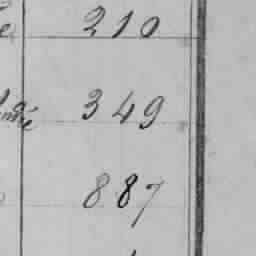 210
349
887